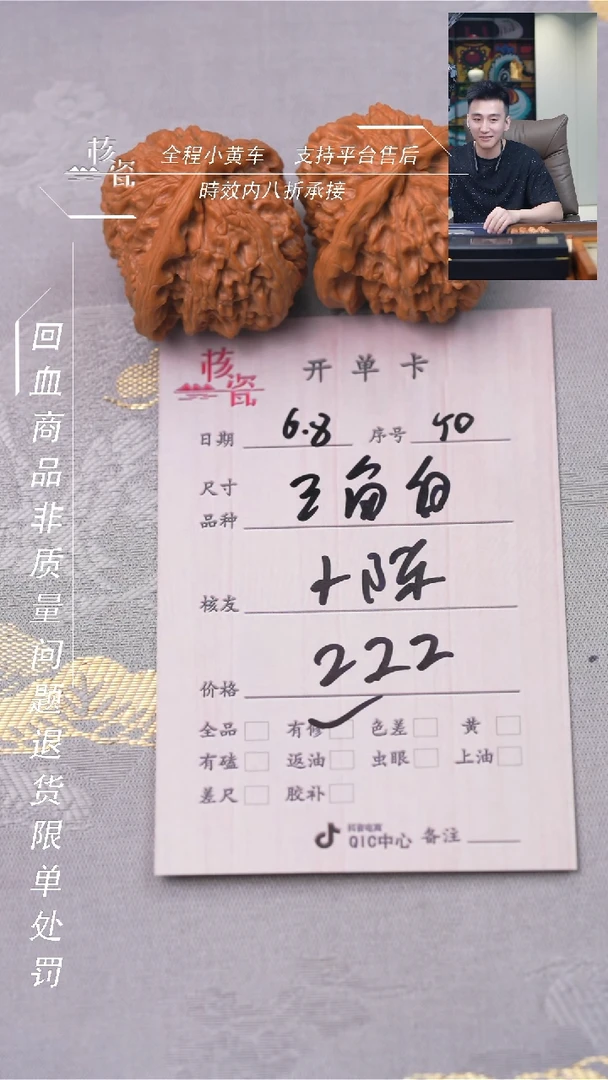 核瓷
全程小黄车 支持平台售后
時效内八折承接
回血商品非质量问题退货限单处罚
核瓷
开单卡
日期 6.8 序号 40
尺寸
品种
核友 陈
价格 222
全品 有修 色差 黄
有磕 返油 虫眼 上油
差尺 胶补
抖音电商
QIC中心 备注